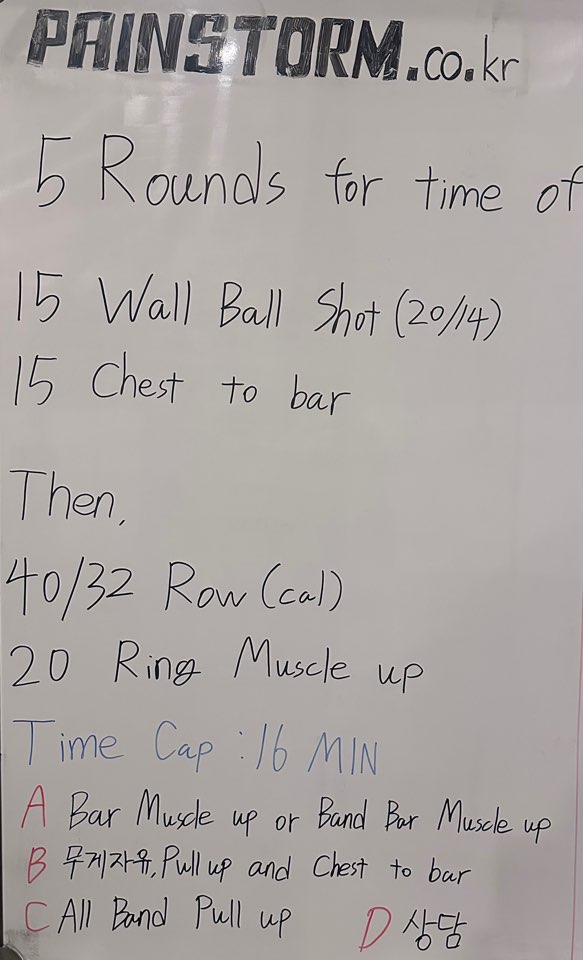 PAINSTORM.co.kr
5 Rounds for time of
15 Wall Ball Shot (20/14)
15 Chest to bar
Then,
40/32 Row (cal)
20 Ring Muscle up
Time Cap : 16 MIN
A Bar Muscle up or Band Bar Muscle up
B 무게자유, Pull up and Chest to bar
C All Band Pull up D 상담